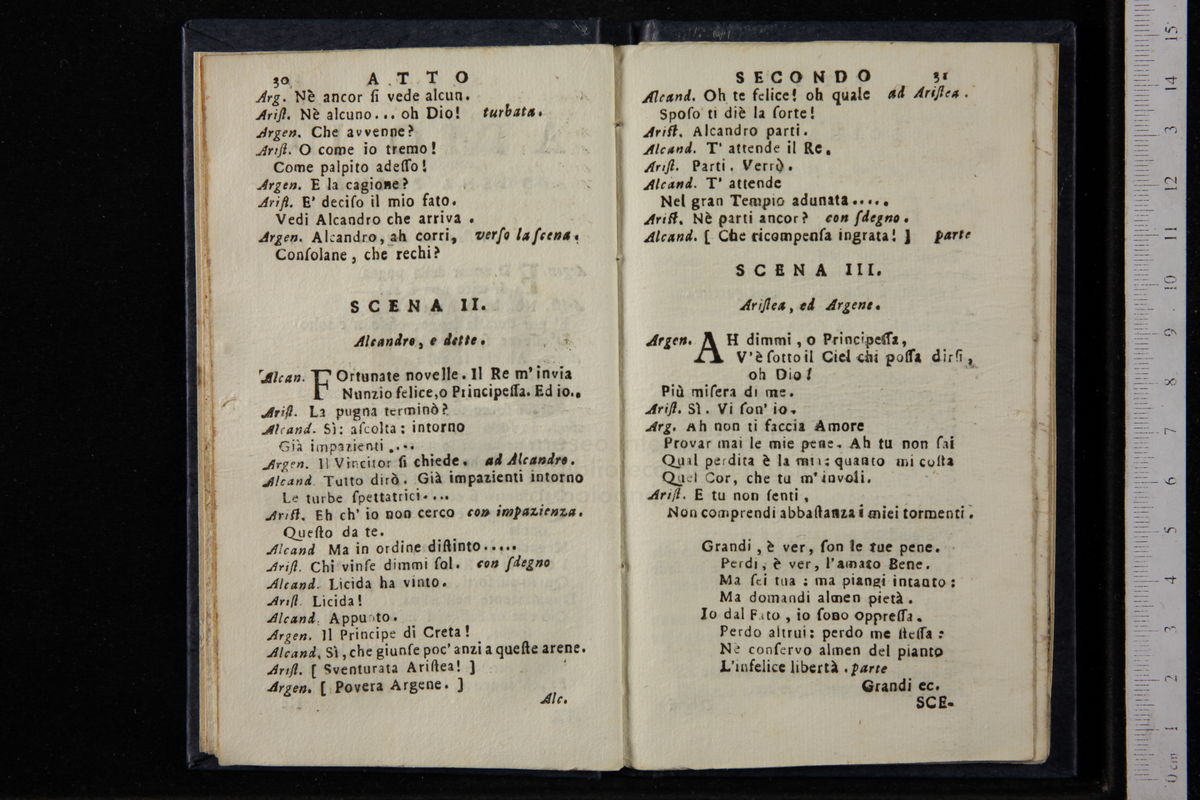 30 ATTO
Arg. Nè ancor ſi vede alcun.
Ariſt. Nè alcuno... oh Dio! turbata.
Argen. Che avvenne?
Ariſt. O come io tremo!
Come palpito adeſſo!
Argen. E la cagione?
Ariſt. E' deciſo il mio fato.
Vedi Alcandro che arriva .
Argen. Alcandro, ah corri, verſo la ſcena.
Conſolane, che rechi?
SCENA II.
Alcandro, e dette.
Alcan. FOrtunate novelle. Il Re m'invia
Nunzio felice, o Principeſſa. Ed io..
Ariſt. La pugna terminò?
Alcand. Sì: aſcolta: intorno
Già impazienti ....
Argen. Il Vincitor ſi chiede. ad Alcandro.
Alcand. Tutto dirò. Già impazienti intorno
Le turbe ſpettatrici....
Ariſt. Eh ch' io non cerco con impazienza.
Queſto da te.
Alcand Ma in ordine diſtinto.....
Ariſt. Chi vinſe dimmi ſol. con ſdegno
Alcand. Licida ha vinto.
Ariſt. Licida!
Alcand. Appunto.
Argen. Il Principe di Creta!
Alcand. Sì, che giunſe poc' anzi a queſte arene.
Ariſt. [ Sventurata Ariſtea! ]
Argen. [ Povera Argene. ]
Alc.
SECONDO 31
Alcand. Oh te felice! oh quale ad Ariſtea .
Spoſo ti diè la ſorte!
Ariſt. Alcandro parti.
Alcand. T' attende il Re.
Ariſt. Parti. Verrò.
Alcand. T' attende
Nel gran Tempio adunata.....
Ariſt. Nè parti ancor? con ſdegno.
Alcand. [ Che ricompenſa ingrata! ] parte
SCENA III.
Ariſtea, ed Argene.
Argen. AH dimmi, o Principeſſa,
V'è ſotto il Ciel chi poſſa dirſi,
oh Dio!
Più miſera di me.
Ariſt. Sì. Vi ſon' io.
Arg. Ah non ti faccia Amore
Provar mai le mie pene. Ah tu non ſai
Qual perdita è la mia: quanto mi coſta
Quel Cor, che tu m'involi.
Ariſt. E tu non ſenti,
Non comprendi abbaſtanza i miei tormenti.
Grandi, è ver, ſon le tue pene.
Perdi, è ver, l'amato Bene.
Ma ſei tua : ma piangi intanto:
Ma domandi almen pietà.
Io dal Fato, io ſono oppreſſa.
Perdo altrui: perdo me ſteſſa:
Nè conſervo almen del pianto
L'infelice libertà .parte
Grandi ec.
SCE-
15
14
3
12
11
10
9
8
7
6
5
4
3
2
1
0 cm